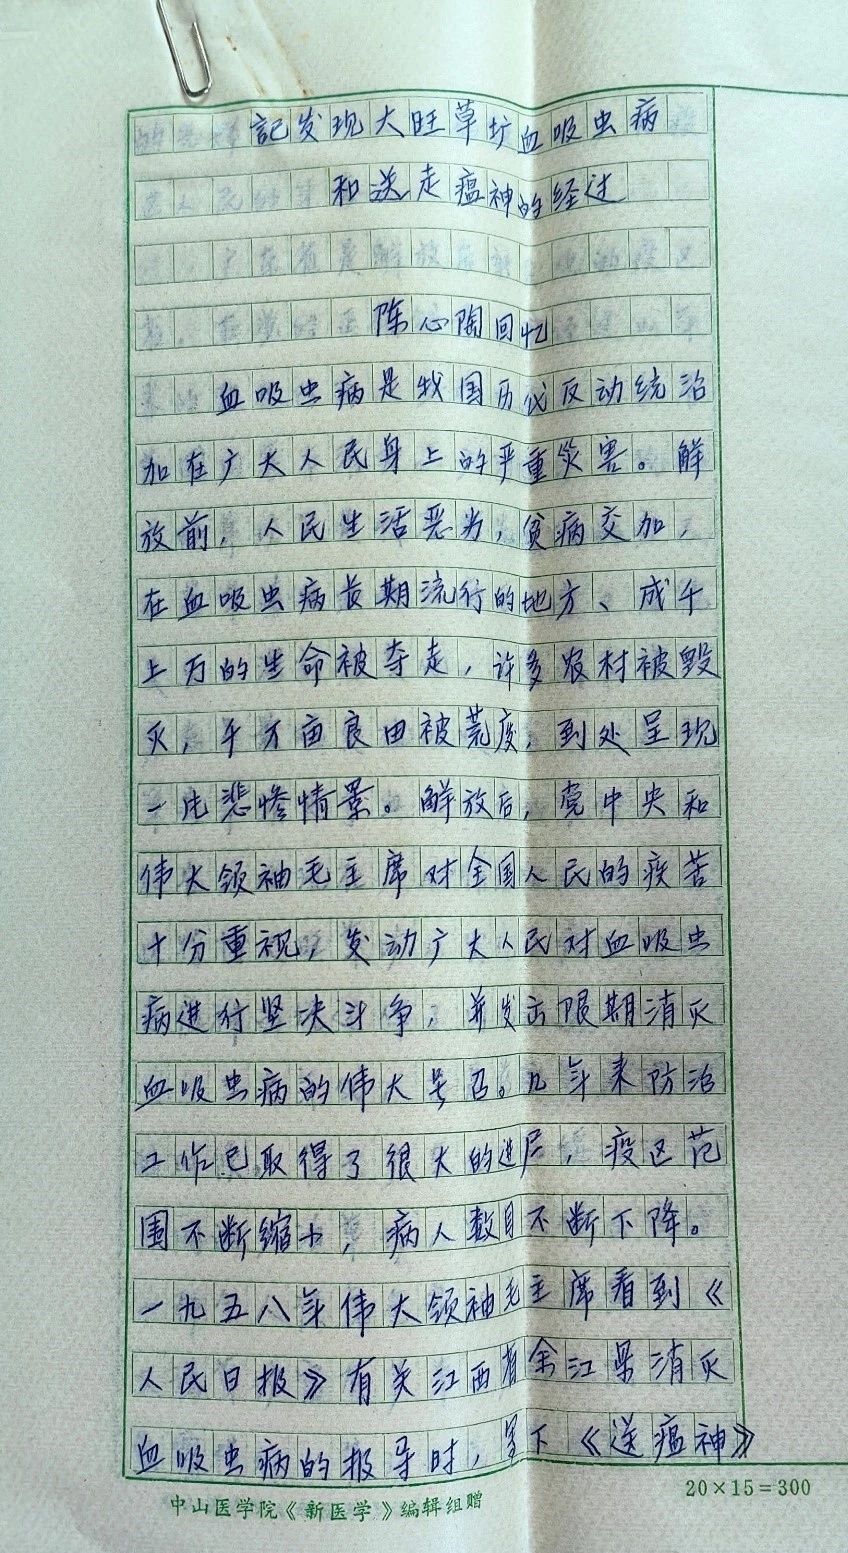 記发现大旺草圹血吸虫病
和送走瘟神的经过
陈心陶回忆
血吸虫病是我国历代反动统治
加在广大人民身上的严重灾害。解
放前，人民生活恶劣，贫病交加，
在血吸虫病长期流行的地方、成千
上万的生命被夺走，许多农村被毁
灭，千万亩良田被荒废，到处呈现
一片悲惨情景。解放后，党中央和
伟大领袖毛主席对全国人民的疾苦
十分重视，发动广大人民对血吸虫
病进行坚决斗争，并发出限期消灭
血吸虫病的伟大号召。几年来防治
工作已取得了很大的进展，疫区范
围不断缩小，病人数目不断下降。
一九五八年伟大领袖毛主席看到《
人民日报》有关江西省余江县消灭
血吸虫病的报导时，写下《送瘟神》
中山医学院《新医学》编辑组赠
20×15=300